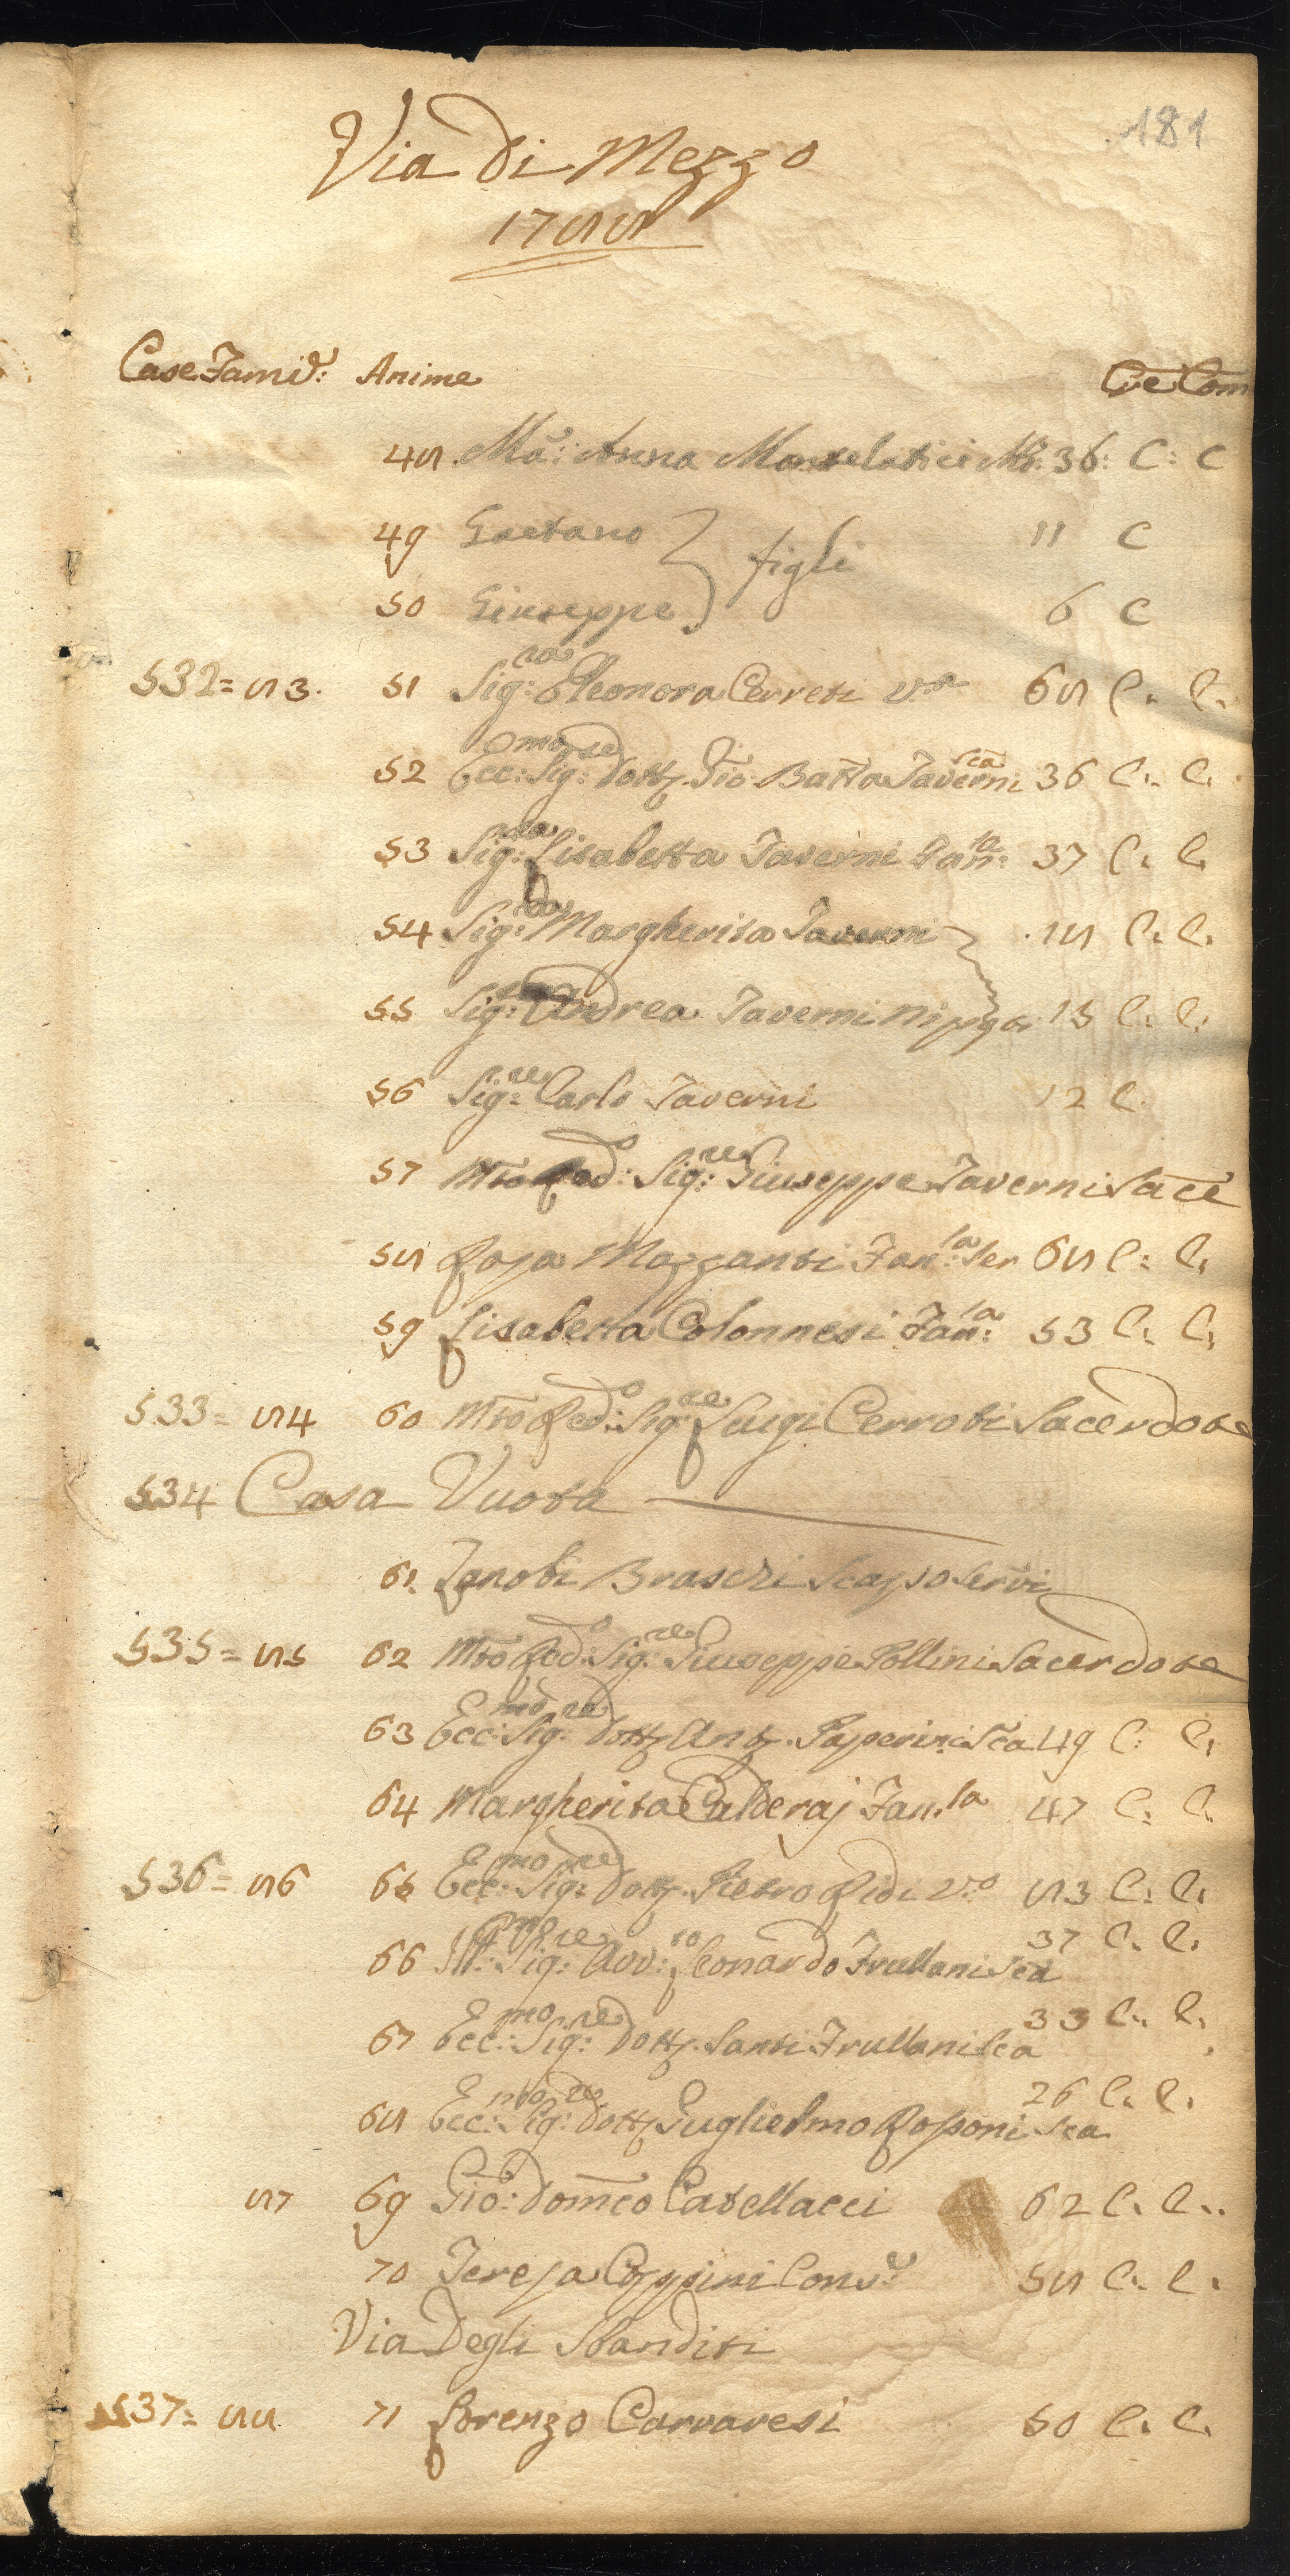 181
Via Di Mezzo
1788
Case Famig: Anime Cre Com
48 Ma: Anna Montelatici Mo: 36: C: C
49 Gaetano 11 C
figli
50 Giuseppe 6 C
532= 83. 51 Sig:ra Eleonora Cerreti v:a 68 C: C:
52 Ecc:mo Sig:re Dott. Gio: Batta Taverni Sca 36 C: C:
53 Sig:ra Lisabetta Taverni 37 C: C:
54 Sig:ra Margherita Taverni 18 C: C:
55 Sig:re Andrea Taverni Nipoti 15 C: C:
56 Sig:re Carlo Taverni 12 C.
57 Mto Red:o Sig:re Giuseppe Taverni Sace
58 Rosa Mazzanti Fan:la Ser 68 C: C:
59 Lisabetta Colonnesi Fan:la 53 C: C:
533= 84 60 Mto Red:o Sig:re Luigi Cerroti Sacerdote
534 Casa Vuota
61 Zanobi Braschi Scapo Servi
535= 85 62 Mto Red:o Sig:re Giuseppe Pollini Sacerdote
63 Ecc:mo Sig:re Dott. Ant. Paperini Sca 49 C: C:
64 Margherita Calderaj Fan.la 47 C: C:
536= 86 65 Ecc:mo Sig:re Dott. Pietro Ridi v:o 83 C: C:
66 Ill:mo Sig:re Avv:to Leonardo Frullani Sca 37 C: C:
67 Ecc:mo Sig:re Dott. Santi Frullani Sca 33 C: C:
68 Ecc:mo Sig:re Dott. Guglielmo Rosponi Sca 26 C: C:
87 69 Gio: Domco Catellacci 62 C: C:
70 Teresa Coppini Cons: 58 C: C:
Via Degli Sbanditi
537= 88 71 Lorenzo Carraresi 50 C: C: